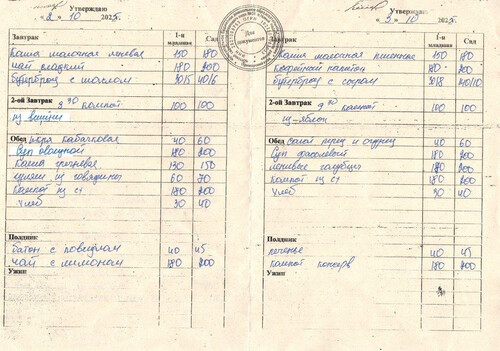 Утверждаю
« 2 » 10 2025г.
Завтрак 1-я младшая Сад
Каша молочная пшенная 150 180
Чай сладкий 180 200
Бутерброд с маслом 30/5 40/6
2-ой Завтрак 9 30 компот 100 100
из вишни
Обед Икра кабачковая 40 60
Суп овощной 180 200
Каша гречневая 130 150
из говядины 60 70
Компот из с/ф 180 200
Хлеб 30 40
Полдник
Батон с повидлом 40 45
Чай с лимоном 180 200
Ужин
Для документов
Утверждаю
« 3 » 10 2025г.
Завтрак 1-я младшая Сад
Каша молочная пшеничн 150 180
Кофейный напиток 180 200
Бутерброд с сыром
2-ой Завтрак 9 30 компот 100 100
из яблок
Обед Салат перец и огурец 40 60
Суп фасолевый 180 200
Ленивые голубцы 180 200
Компот из с/ф 180 200
Хлеб 30 40
Полдник
Печенье 40 45
Компот консерв 180 200
Ужин